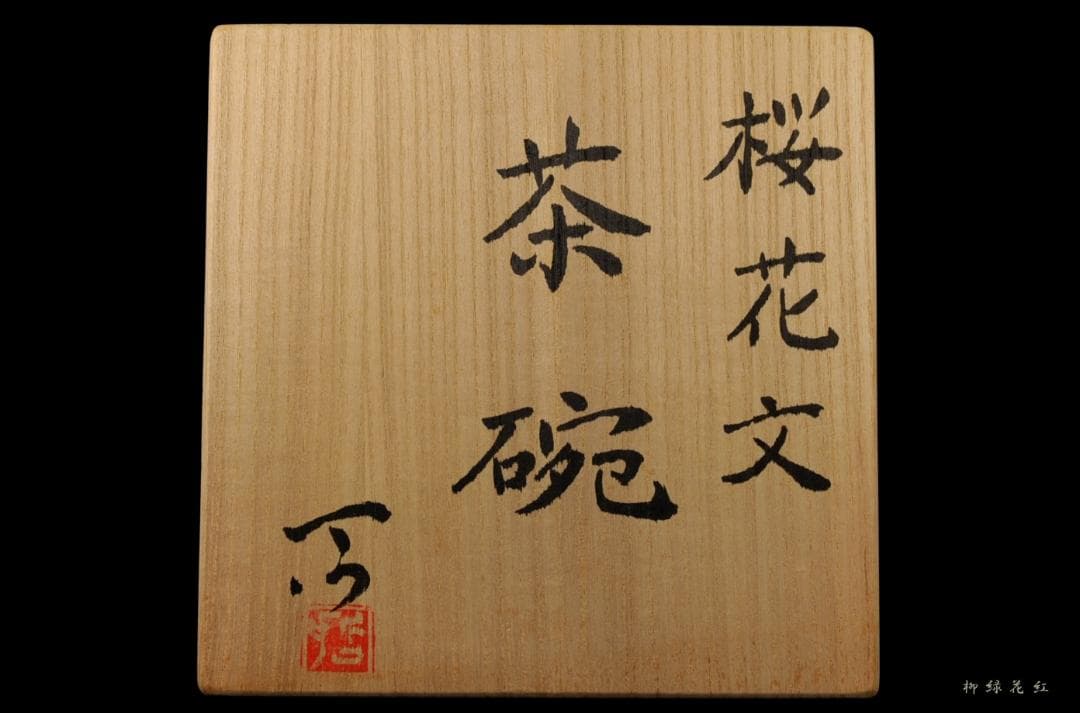 桜花文
茶碗
柳绿花红